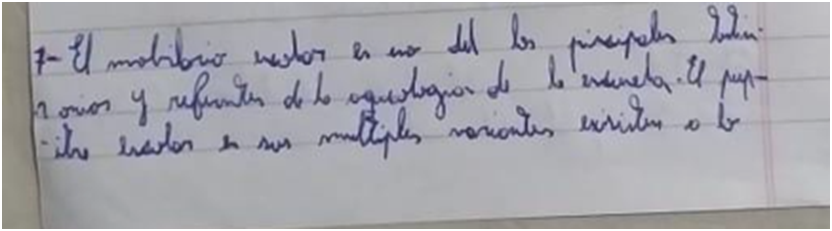 7- El mobiliario escolar es uno del los principales testim-
onios y referentes de la arqueologia de la escuela. El pup-
-itre escolar en sus multiples variantes existen a lo